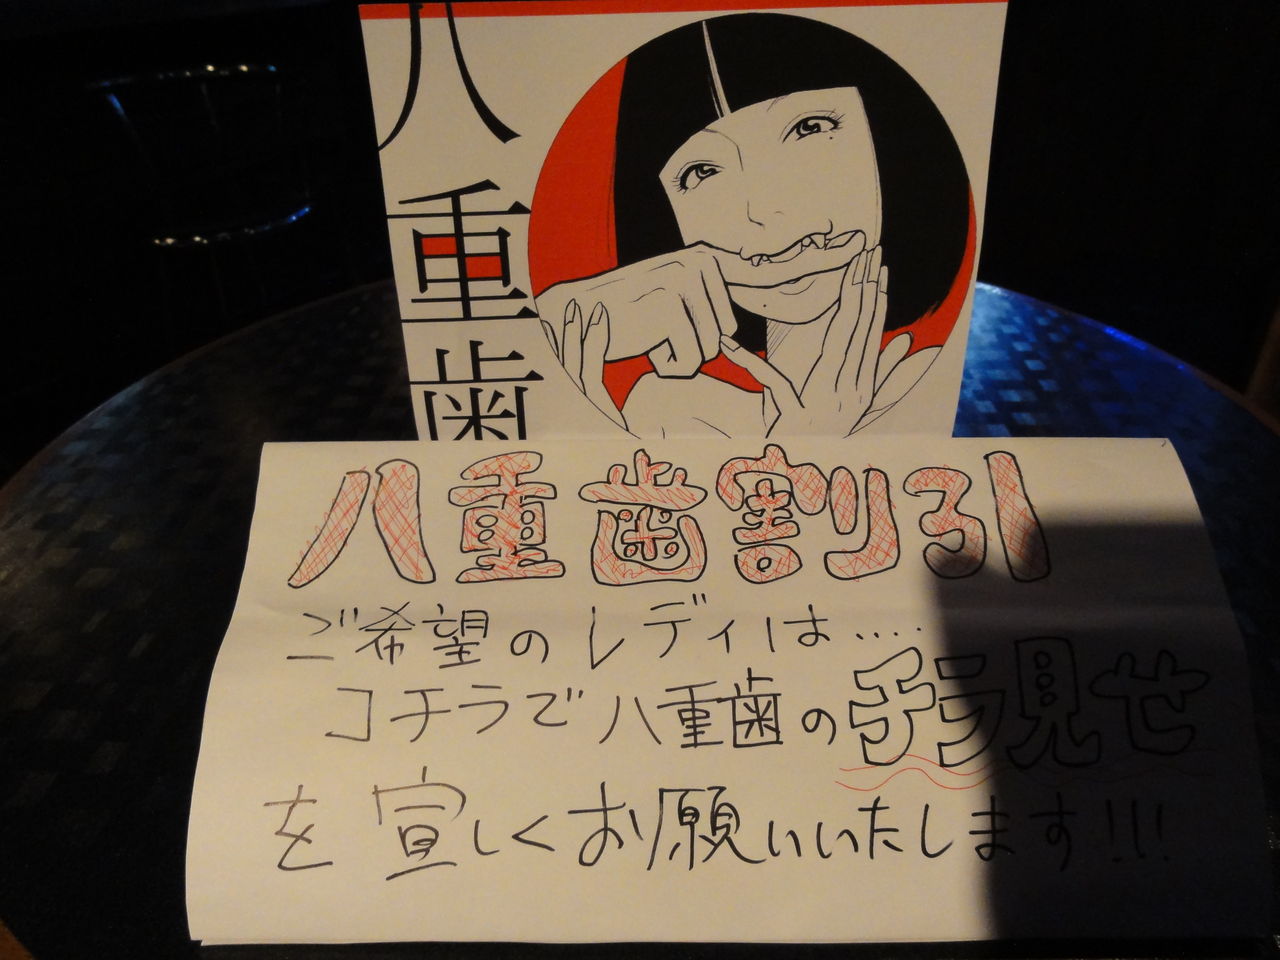 八重歯
八重歯割引
ご希望のレディは‥‥
コチラで八重歯のチラ見せ
を宜しくお願いいたします!!!